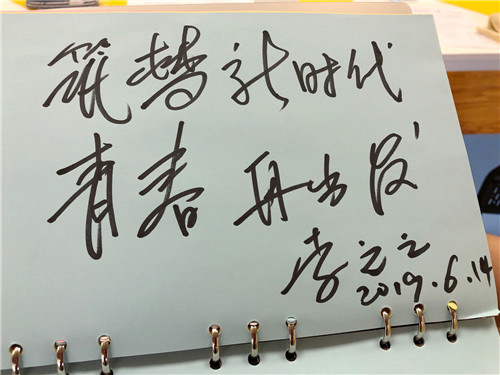 筑梦新时代
青春再出发
李之之
2019.6.14